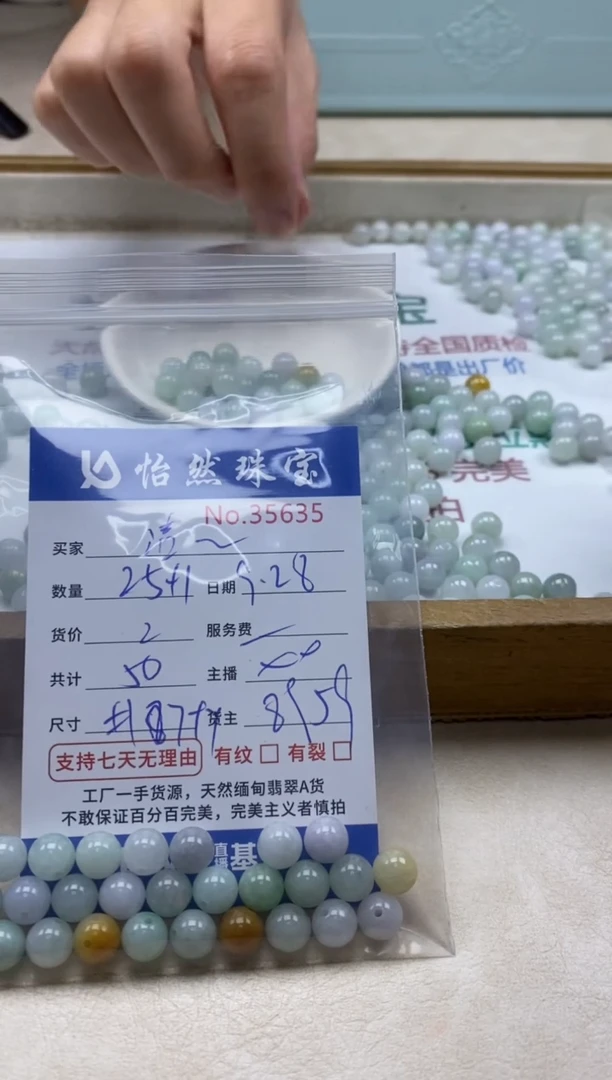 全国质检
都是出厂价
完美
拍
怡然珠宝
No.35635
买家
数量 25+1 日期 9.28
货价 2 服务费
共计 50 主播
尺寸 主 8959
支持七天无理由 有纹 有裂
工厂一手货源，天然缅甸翡翠A货
不敢保证百分百完美，完美主义者慎拍
直播基